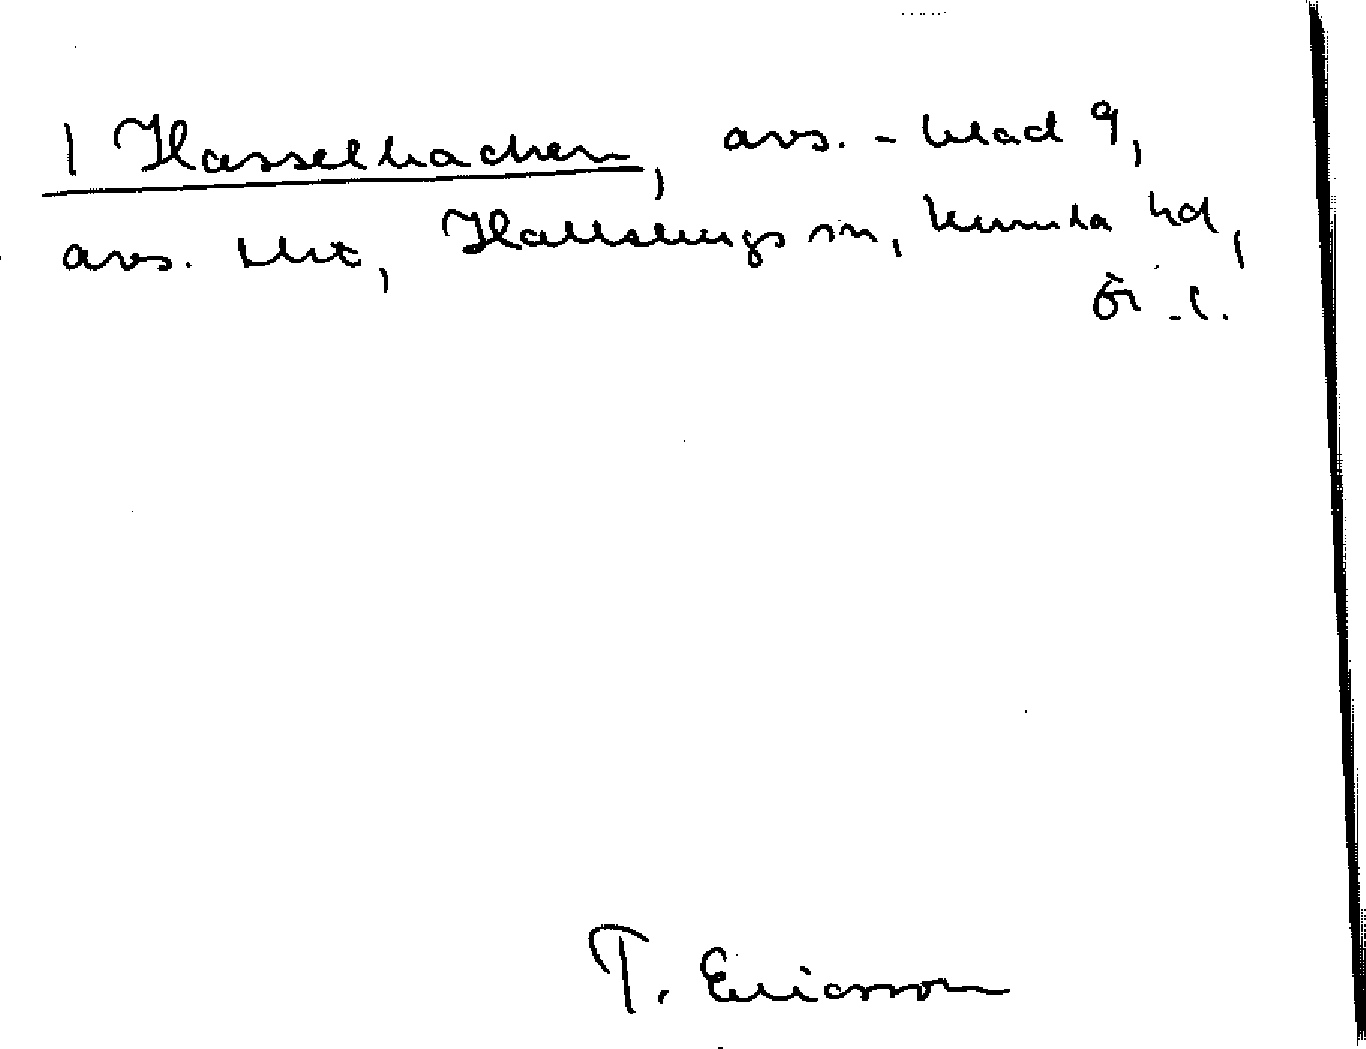 1 Hasselbacken, avs. - blad 9,
avs. blt, Hallsbergs sn, Kumla hd,
Ör. l.
T. Ericsson